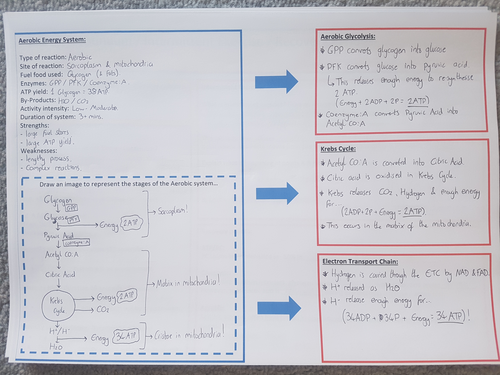 Aerobic Energy System:
Type of reaction: Aerobic
Site of reaction: Sarcoplasm & mitochondria
Fuel food used: Glycogen (& fats)
Enzymes: GPP / PFK / Coenzyme:A
ATP yield: 1 Glycogen = 38ATP
By-Products: H2O / CO2
Activity intensity: Low - Moderate
Duration of system: 3+ mins
Strengths:
- large fuel stores
- large ATP yield.
Weaknesses:
- lengthy process
- complex reactions
Draw an image to represent the stages of the Aerobic system...
Glycogen
GPP
Glucose
PFK
Energy 2ATP
Sarcoplasm!
Pyruvic Acid
Coenzyme-A
Acetyl CO:A
Citric Acid
Krebs
Cycle
Energy 2ATP
CO2
Matrix in mitochondria!
H+/H-
Energy 34 ATP
Cristae in mitochondria!
H2O
Aerobic Glycolysis:
GPP converts glycogen into glucose
PFK converts glucose into Pyruvic acid
This releases enough energy to resynthesise
2 ATP
(Energy + 2ADP + 2P = 2ATP)
Coenzyme:A converts Pyruvic Acid into
Acetyl CO:A
Krebs Cycle:
Acetyl CO:A is converted into Citric Acid.
Citric acid is oxidised in Krebs Cycle.
Krebs releases CO2, Hydrogen & enough energy
for...
(2ADP+2P + Energy = 2ATP)
This occurs in the matrix of the mitochondria.
Electron Transport Chain:
Hydrogen is carried through the ETC by NAD & FAD.
H+ released as H2O
H- release enough energy for...
(34ADP + 34P + Energy = 34 ATP)!